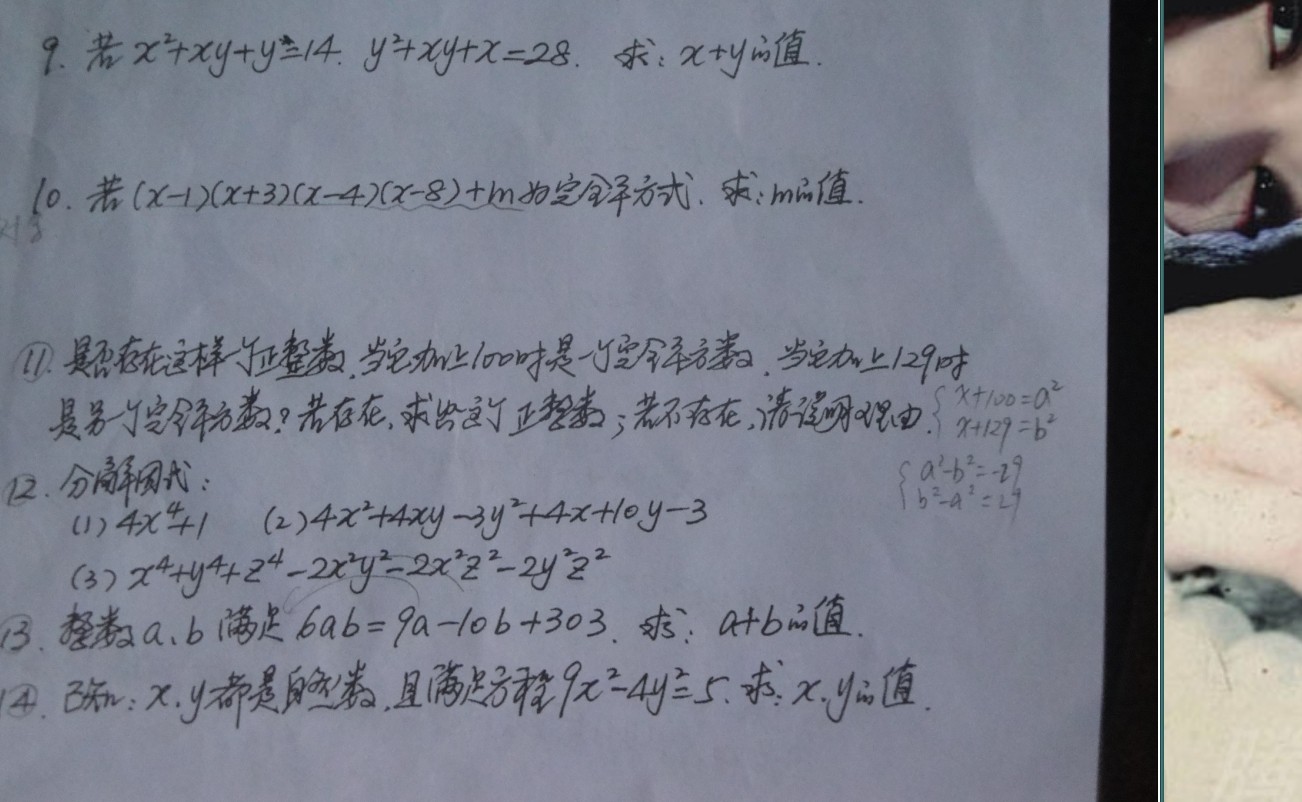 9. 若 x²+xy+y=14. y²+xy+x=28. 求: x+y的值.
10. 若 (x-1)(x+3)(x-4)(x-8)+m为完全平方式. 求: m的值.
⑪. 是否存在这样一个正整数, 当它加上100时是一个完全平方数, 当它加上129时
是另一个完全平方数? 若存在, 求出这个正整数; 若不存在, 请说明理由.
x+100=a²
x+129=b²
a²-b²=-29
b²-a²=29
12. 分解因式:
(1) 4x⁴+1 (2) 4x²+4xy-3y²+4x+10y-3
(3) x⁴+y⁴+z⁴-2x²y²-2x²z²-2y²z²
13. 整数a、b满足 6ab=9a-10b+303. 求: a+b的值.
14. 已知: x、y都是自然数, 且满足方程9x²-4y²=5. 求: x、y的值.